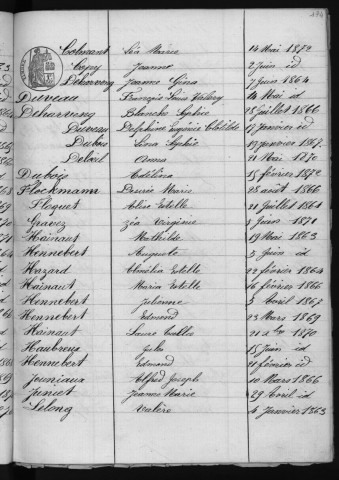 194
Colmant Léa Marie 14 Mai 1872
Copy Jeanne 2 Juin id
Deharveng Jeanne Gina 7 Juin 1864
Duveau François Louis Valery 14 Mai id
Deharveng Blanche Sophie 28 Juillet 1866
Duveau Delphine Eugénie Clotilde 17 Janvier id
Dubois Lena Sophie 19 Janvier 1867
Debeil Anna 21 Mai 1870
Dubois Adelina 15 février 1872
Flockmann Marie 28 août 1866
Floquet Alix Estelle 21 Juillet 1864
Gravez Zéa Virginie 8 Juin 1871
Hainaut Mathilde 19 Mai 1863
Hennebert Auguste 3 Juin id
Hazard Elmélia Estelle 22 février 1864
Hainaut Maria Estelle 16 février 1866
Hennebert Julienne 3 Avril 1867
Hennebert Edmond 23 Mars 1869
Hainaut Laure 21 xbre 1870
Haubreux Jules 15 Juin id
Hennebert Edmond 21 février id
Jouniaux Alfred Joseph 10 Mars 1866
Juniet Jeanne Marie 29 Avril id
Lelong Valère 4 Janvier 1863